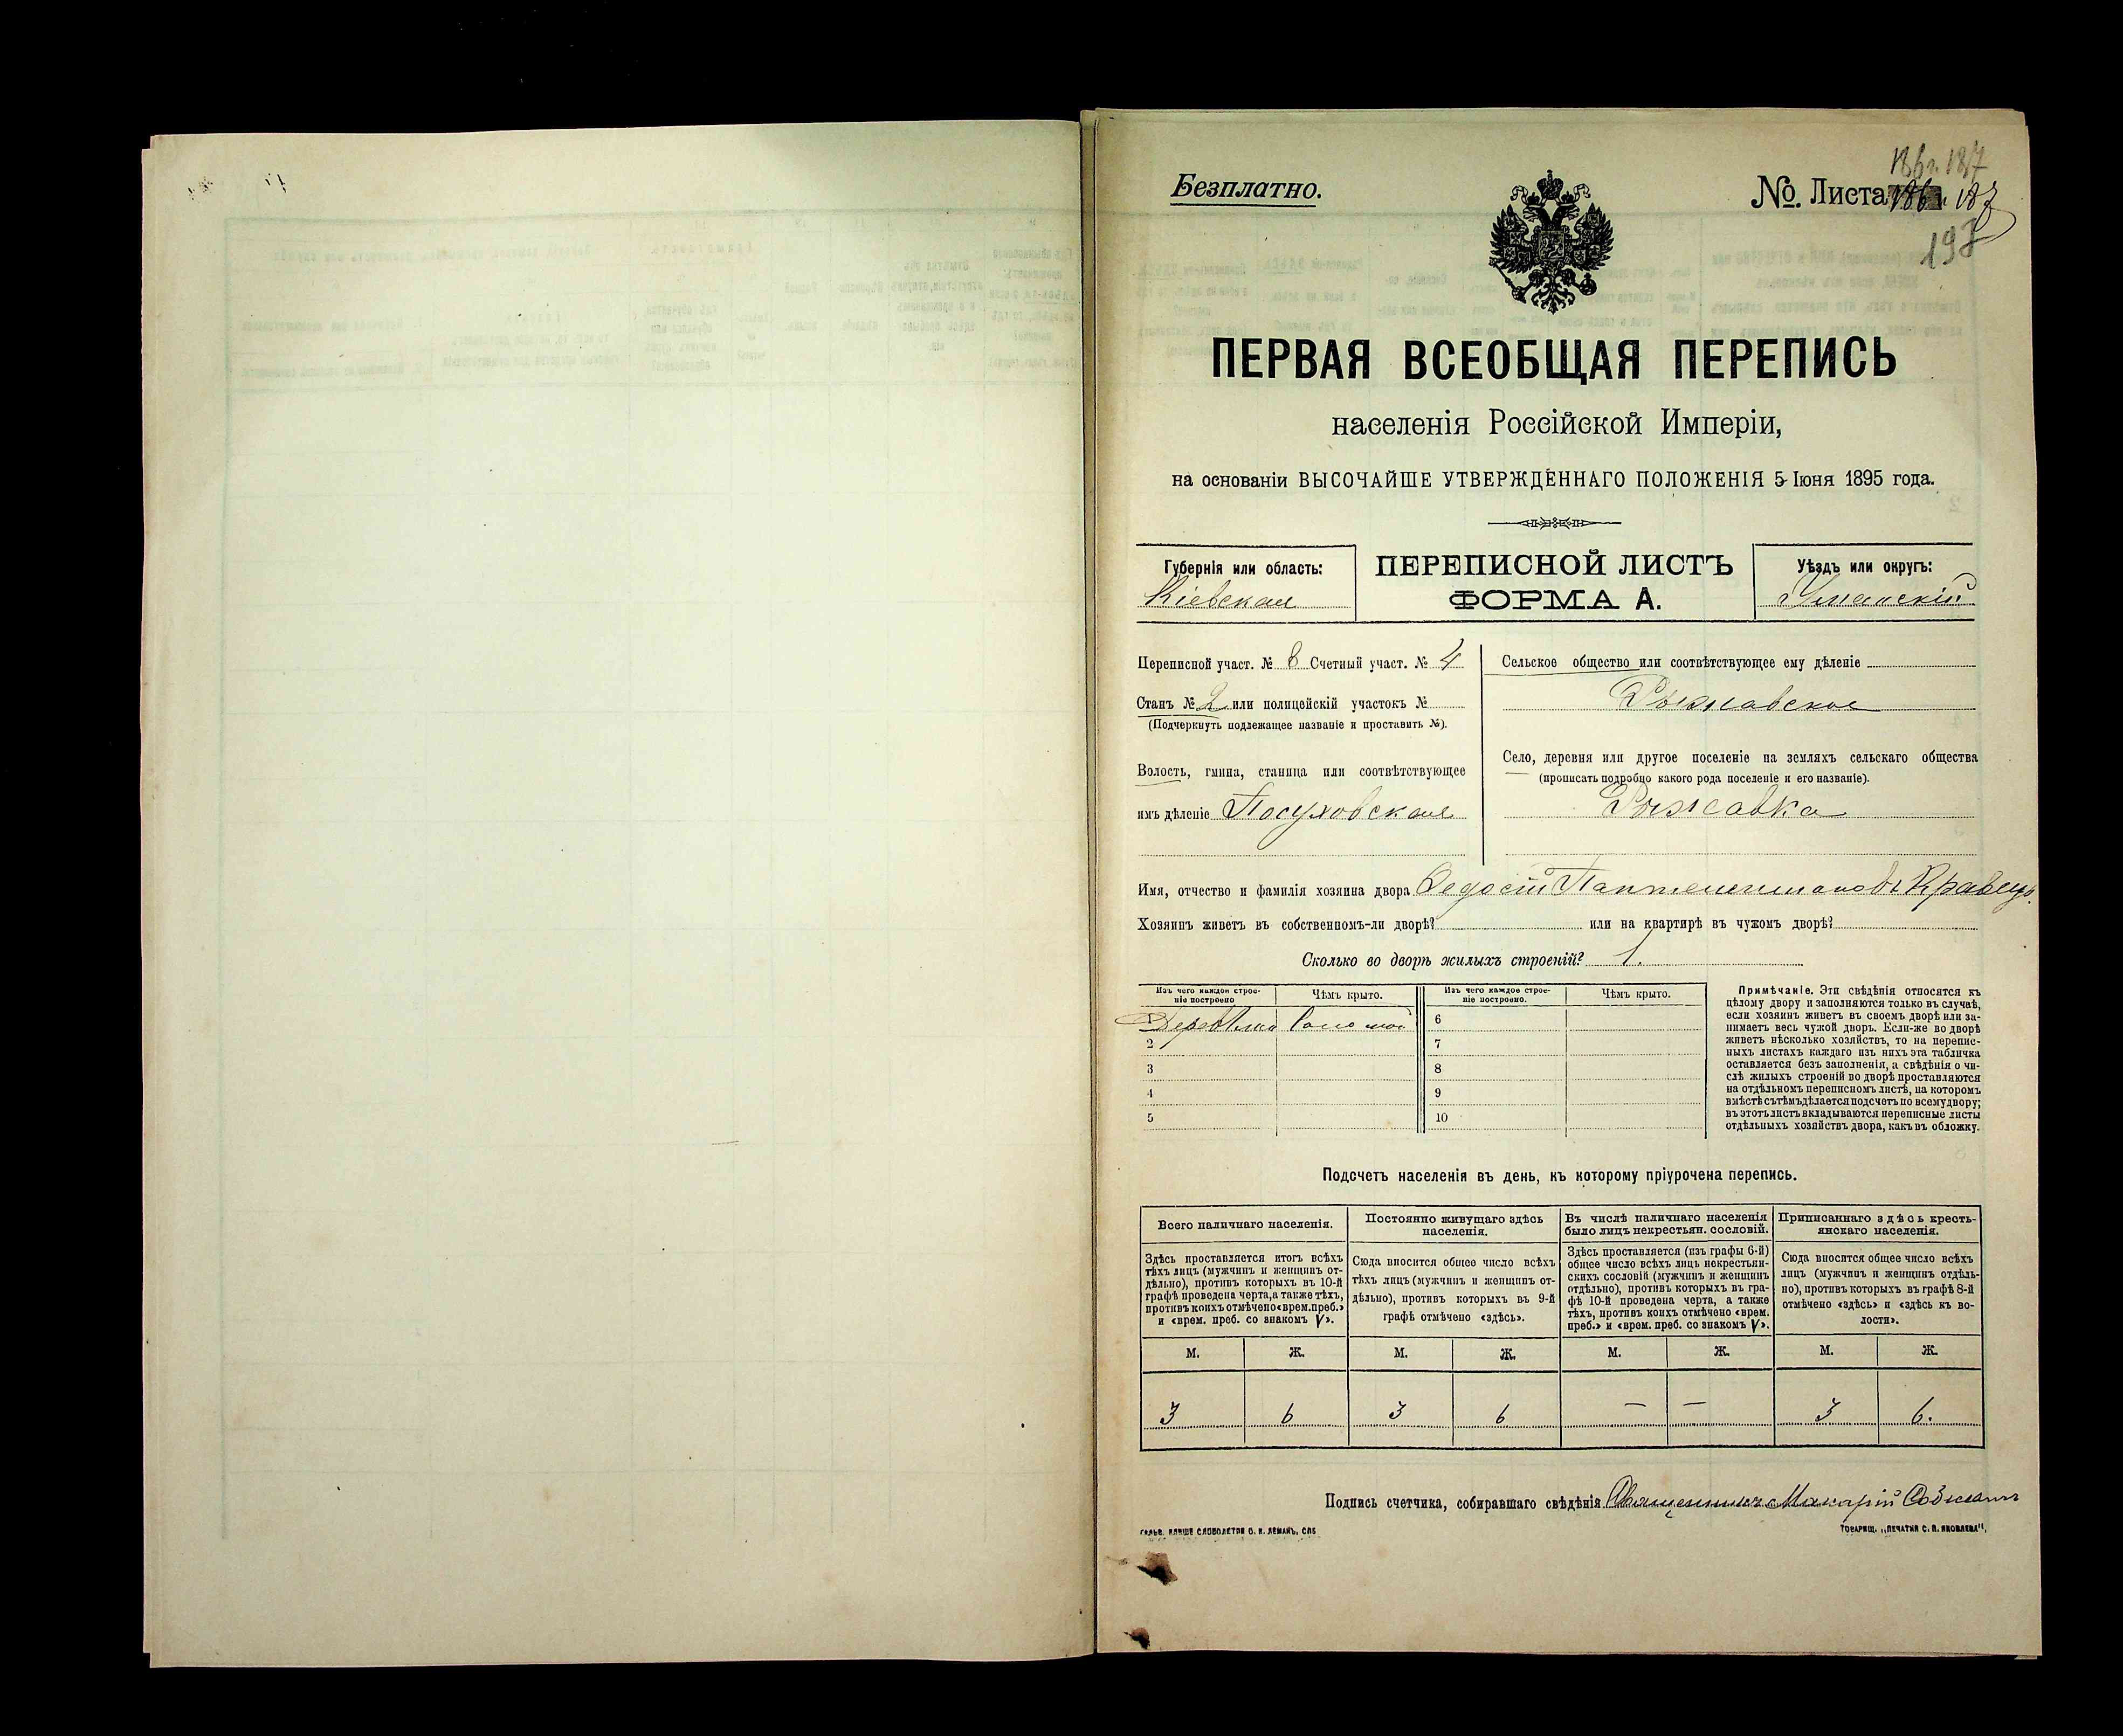 Безплатно.
186 и 187
№. Листа 186 и 187
197
ПЕРВАЯ ВСЕОБЩАЯ ПЕРЕПИСЬ
населенія Россійской Имперіи,
на основаніи ВЫСОЧАЙШЕ УТВЕРЖДЕННАГО ПОЛОЖЕНІЯ 5 Іюня 1895 года.
Губернія или область:
Кіевская
ПЕРЕПИСНОЙ ЛИСТЪ
ФОРМА А.
Уѣздъ или округъ:
Уманскій
Переписной участ. № 8 Счетный участ. № 4
Станъ № 2 или полицейскій участокъ №
(Подчеркнуть подлежащее названіе и проставить №).
Волость, гмина, станица или соотвѣтствующее
имъ дѣленіе Посуховская
Сельское общество или соотвѣтствующее ему дѣленіе
Рыжавское
Село, деревня или другое поселеніе на земляхъ сельскаго общества
(прописать подробно какого рода поселеніе и его названіе).
Рыжавка
Имя, отчество и фамилія хозяина двора Федосій Пантелеимоновъ Кравецъ.
Хозяинъ живетъ въ собственномъ-ли дворѣ? или на квартирѣ въ чужомъ дворѣ?
Сколько во дворѣ жилыхъ строеній? 1.
Изъ чего каждое строеніе построено
Чѣмъ крыто.
Изъ чего каждое строеніе построено.
Чѣмъ крыто.
1 Соломой 6
2 7
3 8
4 9
5 10
Примѣчаніе. Эти свѣдѣнія относятся къ
цѣлому двору и заполняются только въ случаѣ,
если хозяинъ живетъ въ своемъ дворѣ или за-
нимаетъ весь чужой дворъ. Если-же во дворѣ
живетъ нѣсколько хозяйствъ, то на перепис-
ныхъ листахъ каждаго изъ нихъ эта табличка
оставляется безъ заполненія, а свѣдѣнія о чи-
слѣ жилыхъ строеній во дворѣ проставляются
на отдѣльномъ переписномъ листѣ, на которомъ
вмѣстѣ съ тѣмъ дѣлается подсчетъ по всему двору;
въ этотъ листъ вкладываются переписные листы
отдѣльныхъ хозяйствъ двора, какъ въ обложку.
Подсчетъ населенія въ день, къ которому пріурочена перепись.
Всего наличнаго населенія.
Здѣсь проставляется итогъ всѣхъ
тѣхъ лицъ (мужчинъ и женщинъ от-
дѣльно), противъ которыхъ въ 10-й
графѣ проведена черта, а также тѣхъ,
противъ коихъ отмѣчено «врем. преб.»
и «врем. преб. со знакомъ V».
Постоянно живущаго здѣсь
населенія.
Сюда вносится общее число всѣхъ
тѣхъ лицъ (мужчинъ и женщинъ от-
дѣльно), противъ которыхъ въ 9-й
графѣ отмѣчено «здѣсь».
Въ числѣ наличнаго населенія
было лицъ некрестьян. сословій.
Здѣсь проставляется (изъ графы 6-й)
общее число всѣхъ лицъ некрестьян-
скихъ сословій (мужчинъ и женщинъ
отдѣльно), противъ которыхъ въ гра-
фѣ 10-й проведена черта, а также
тѣхъ, противъ коихъ отмѣчено «врем.
преб.» и «врем. преб. со знакомъ V».
Приписаннаго здѣсь кресть-
янскаго населенія.
Сюда вносится общее число всѣхъ
лицъ (мужчинъ и женщинъ отдѣль-
но), противъ которыхъ въ графѣ 8-й
отмѣчено «здѣсь» и «здѣсь къ во-
лости».
М. Ж. М. Ж. М. Ж. М. Ж.
3 6 3 6 — — 3 6.
Подпись счетчика, собиравшаго свѣдѣнія Священникъ Макарій
ТОВАРИЩ. „ПЕЧАТНЯ С. П. ЯКОВЛЕВА“.